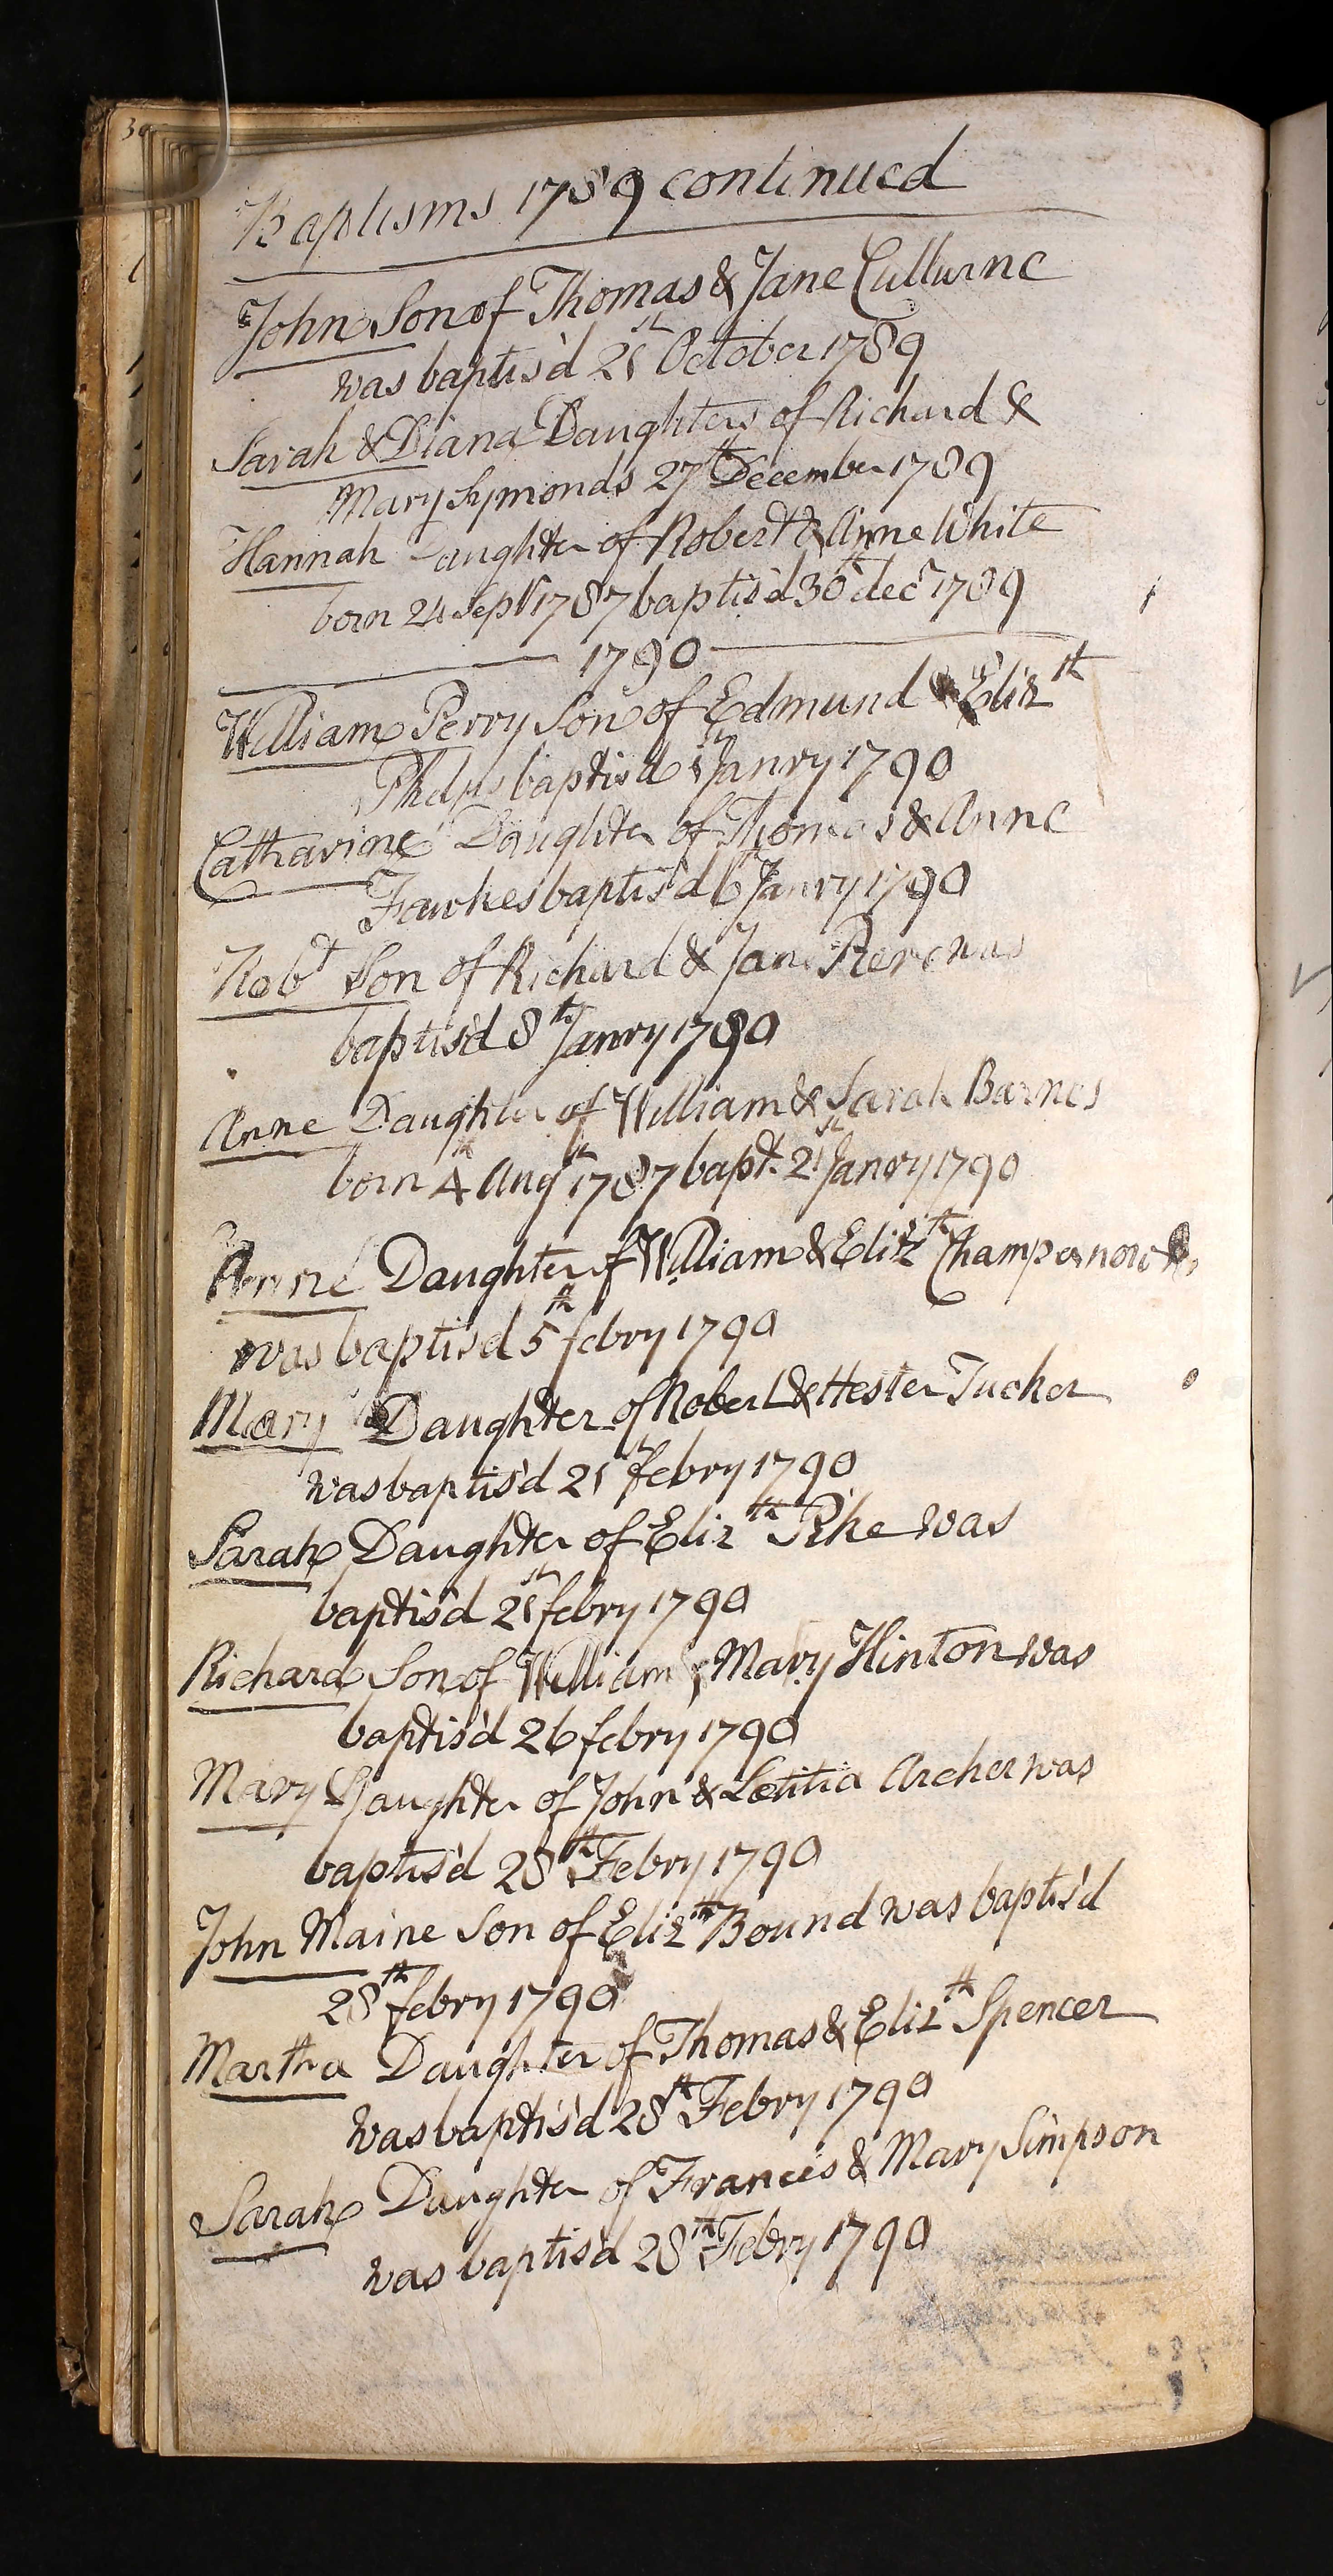 Baptisms 1789 continued
John Son of Thomas & Jane Cullurne
was baptis'd 21st October 1789
Sarah & Diana Daughters of Richard &
Mary Symonds 27th December 1789
Hannah Daughter of Robert & Anne White
born 24 Sept 1787 baptis'd 30th decr 1789
1790
William Perry Son of Edmund & Elizth
Phelps baptis'd 1st Janry 1790
Catharine Daughter of Thomas & Anne
Fawkes baptis'd 6th Janry 1790
Robt Son of Richard & Jane was
baptis'd 8th Janry 1790
Anne Daughter of William & Sarah Barnes
born 4th Augst 1787 bapt. 21st Janry 1790
Anne Daughter of William & Elizth
was baptis'd 5th febry 1790
Mary Daughter of Robert & Hester Tucker
was baptis'd 21st febry 1790
Sarah Daughter of Elizth Pike was
baptis'd 21st febry 1790
Richard Son of William & Mary Hinton was
baptis'd 26 febry 1790
Mary Daughter of John & Lætitia Archer was
baptis'd 28th Febry 1790
John Maine Son of Elizth Bound was baptis'd
28th febry 1790
Martha Daughter of Thomas & Elizth Spencer
was baptis'd 28th Febry 1790
Sarah Daughter of Francis & Mary Simpson
was baptis'd 28th Febry 1790